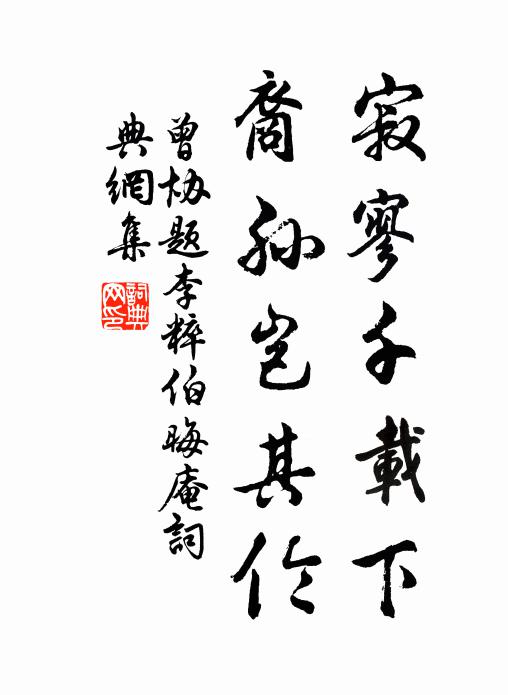 寂寥千載下
裔孫豈其倫
曾協題李粹伯晦庵詞
典網集
詞典网印